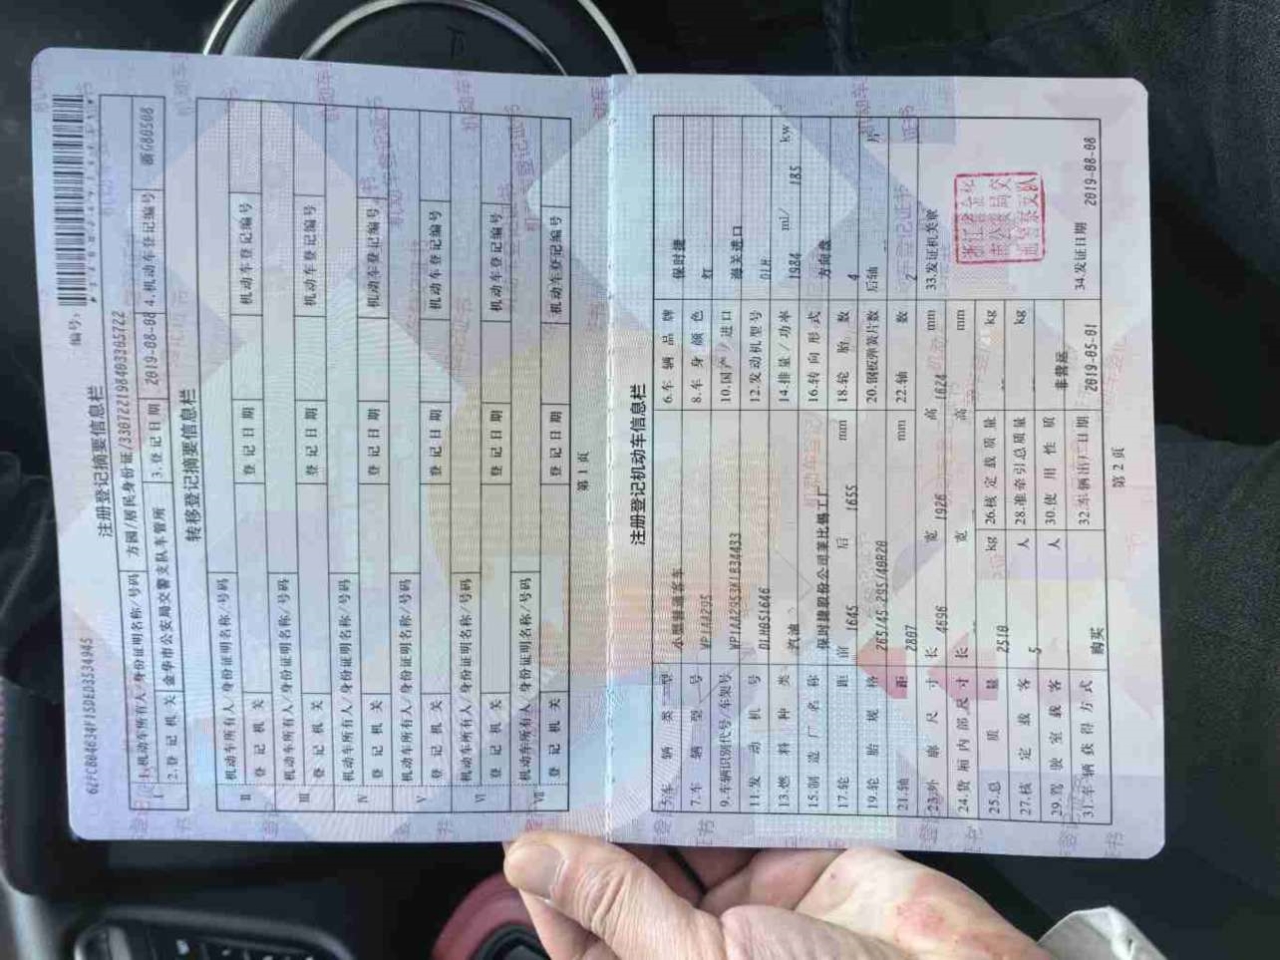 编号:
62FCB04634F15DED3534945
注册登记摘要信息栏
I 1.机动车所有人/身份证明名称/号码 方园/居民身份证/330722198403305722
2.登记机关 金华市公安局交警支队车管所 3.登记日期 2019-08-08 4.机动车登记编号 浙G80S08
转移登记摘要信息栏
II 机动车所有人/身份证明名称/号码
登记机关 登记日期 机动车登记编号
III 机动车所有人/身份证明名称/号码
登记机关 登记日期 机动车登记编号
IV 机动车所有人/身份证明名称/号码
登记机关 登记日期 机动车登记编号
V 机动车所有人/身份证明名称/号码
登记机关 登记日期 机动车登记编号
VI 机动车所有人/身份证明名称/号码
登记机关 登记日期 机动车登记编号
VII 机动车所有人/身份证明名称/号码
登记机关 登记日期 机动车登记编号
第1页
注册登记机动车信息栏
5.车辆类型 小型普通客车 6.车辆品牌 保时捷
7.车辆型号 WP1AA295 8.车身颜色 红
9.车辆识别代号/车架号 WP1AA2953KLB34433 10.国产/进口 海关进口
11.发动机号 DLH051646 12.发动机型号 DLH
13.燃料种类 汽油 14.排量/功率 1984 ml/ 185 kw
15.制造厂名称 保时捷股份公司莱比锡工厂 16.转向形式 方向盘
17.轮距 前 1645 后 1655 mm 18.轮胎数 4
19.轮胎规格 265/45 295/40R20 20.钢板弹簧片数 后轴 片
21.轴距 2807 mm 22.轴数 2
23.外廓尺寸 长 4696 宽 1926 高 1624 mm 33.发证机关章
24.货厢内部尺寸 长 宽 高 mm
浙江省金华市公安局交通警察支队
25.总质量 2510 kg 26.核定载质量 kg
27.核定载客 5 人 28.准牵引总质量 kg
29.驾驶室载客 人 30.使用性质 非营运
31.车辆获得方式 购买 32.车辆出厂日期 2019-05-01 34.发证日期 2019-08-08
第2页